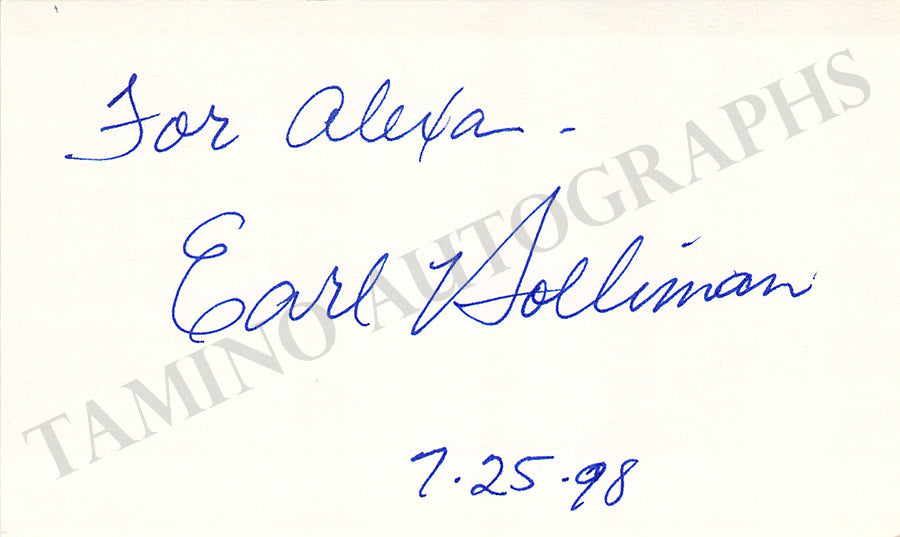 For Alexa -
Earl Holliman
7.25.98
TAMINO AUTOGRAPHS